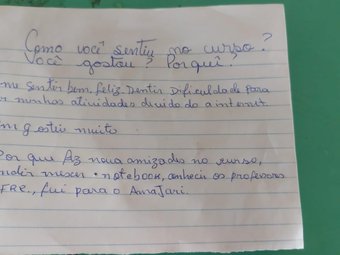 Como você sentiu no curso?
Você gostou? Porquê!
me sentir bem, feliz. Sentir Dificuldade Para
minhas atividades divido do a internet.
gostei muito
Por que fiz nova amizades no curso,
mexer o notebook, conhecir os professores
, fui para o Amajari.